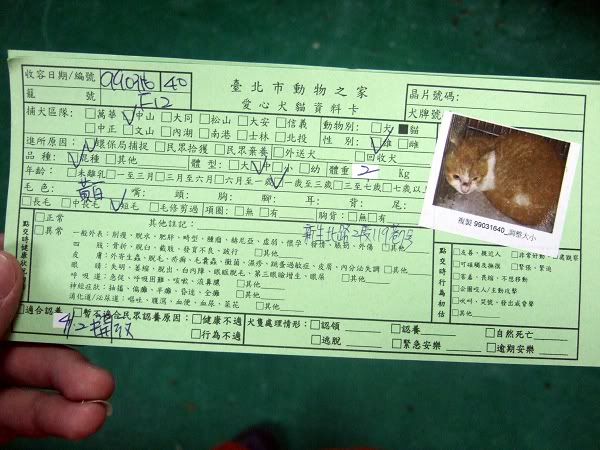 收容日期/編號 990316 40
臺北市動物之家
愛心犬貓資料卡
晶片號碼:
籠 號 F12
犬牌號
捕犬區隊: □萬華 □中山 □大同 □松山 □大安 □信義
□中正 □文山 □內湖 □南港 □士林 □北投
動物別: □犬 ■貓
性 別: □雄 □雌
進所原因: □環保局捕捉 □民眾拾獲 □民眾棄養 □外送犬 □回收犬
品 種: □混種 □其他 體 型: □大 □中 □小 □幼 體重 2 Kg
年齡: □未離乳 □一至三月 □三月至六月 □六月至一歲 □一歲至三歲 □三至七歲 □七歲以上
毛 色: 黃白 嘴: 頭: 胸: 腳: 耳: 背: 尾:
□長毛 □中長毛 □短毛 □毛修剪過 項圈: □無 □有 胸背: □無 □有
複製 99031640_調整大小
點交時健康狀況
□正常
□異常
其他註記:
一般外表: 削瘦、脫水、肥胖、畸型、腫瘤、結死亞、虛弱、懷孕、發情、脹筋、外傷 □其他
四 肢: 骨折、脫臼、截肢、發育不良、跛行 □其他
皮 膚: 外寄生蟲、脫毛、疥癬、毛囊蟲、黴菌、濕疹、跳蚤過敏症、皮屑、內分泌失調 □其他
眼 睛: 失明、萎縮、脫出、白內障、眼瞼脫毛、第三眼瞼增生、眼屎 □其他
呼 吸 道: 急促、呼吸困難、咳嗽、流鼻膿 □其他
神經症狀: 抽搐、偏癱、半癱、昏迷、全癱 □其他
消化道/泌尿道: 嘔吐、腹瀉、血便、血尿、菜花 □其他
點交時行為初估
□友善、親近人
□可碰觸及操摸 □警張、緊迫
□害羞、長縮、不想移動
□企圖咬人/主動攻擊
□吠叫、哭號、發出威脅聲
□其他
□適合認養 □暫不適合民眾認養原因: □健康不適
□行為不適
4/2開放
犬隻處理情形: □認領 □認養 □自然死亡
□逃脫 □緊急安樂 □逾期安樂